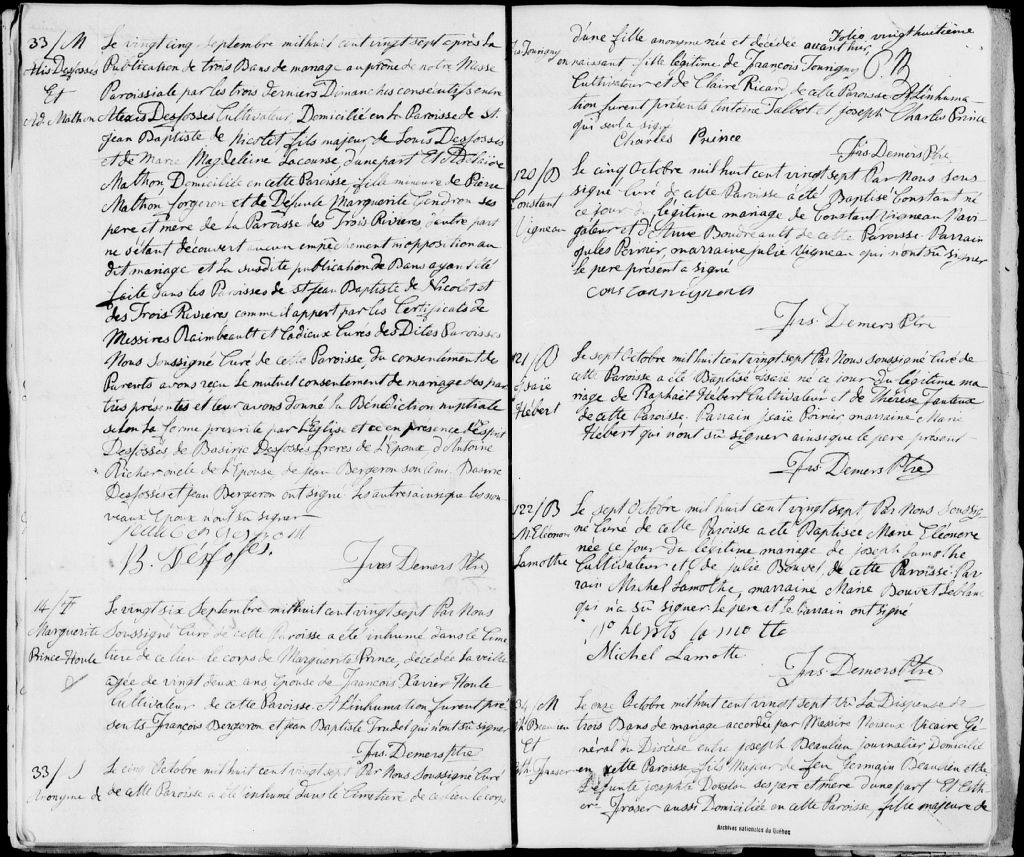 33/M
Alis Desfossés
Et
Ad. Mathon
Le vingt cinq septembre mil huit cent vingt sept après la
Publication de trois Bans de mariage au prône de notre Messe
Paroissiale par les trois derniers Dimanches consécutifs entre
Alexis Desfosses Cultivateur, Domicilié en La Paroisse de st.
Jean Baptiste de Nicolet fils majeur de Louis Desfosses
et de Marie Magdeleine Lacourse d'une part Et Adelaïde
Mathon Domiciliée en cette Paroisse, fille mineure de Pierre
Mathon forgeron et de Defunte Marguerite Gendron ses
pere et mère de la Paroisse des Trois Rivieres d'autre part
ne s'étant découvert aucun empêchement ni opposition au
dit mariage et la susdite publication de Bans ayant été
faite dans les Paroisses de st Jean Baptiste de Nicolet et
des Trois Rivieres comme il appert par les Certificats de
Messires Raimbeault et Cadieux Curés des Dites Paroisses
Nous soussigné Curé de cette Paroisse du consentement des
Parents avons reçu le mutuel consentement de mariage des par
ties présentes et leur avons donné la Bénédiction nuptiale
selon la forme prescrite par l'Eglise et ce en presence d'Esprit
Desfossés de Basirie Desfossés freres de l'Epoux, d'Antoine
Richer oncle de l'Epouse de Jean Bergeron son Basirie
Desfossés et Jean Bergeron ont signé les autres ainsi que les nou-
veaux Epoux n'ont su signer
B. Desfossés
Frs Demers Ptre
14/F
Marguerite
Prince Houle
Le vingt six Septembre mil huit cent vingt sept Par Nous
Soussigné Curé de cette Paroisse a été inhumé dans le Cime
tiere de ce lieu le corps de Marguerite Prince, décédée la veille
agée de vingt deux ans, Epouse de Francois Xavier Houle
Cultivateur de cette Paroisse A l'inhumation furent pré-
sents François Bergeron et Jean Baptiste Trudel qui n'ont su signer
Frs. Demers Ptre
33/S
Anonyme de
Le cinq Octobre mil huit cent vingt sept Par Nous Soussigné Curé
de cette Paroisse a été inhumé dans le Cimetiere de ce lieu le corps
Folio vingt huitième
Frs Tourigny
d'une fille anonyme née et décédée avant hier
en naissant fille légitime de François Tourigny
Cultivateur et de Claire Ricard de cette Paroisse A l'inhuma
tion furent présents Antoine Talbot et Joseph Charles Prince
qui seul a signé
Charles Prince
Frs Demers Ptre
120/B
Constant
Vigneau
Le cinq Octobre mil huit cent vingt sept Par Nous sous
signé Curé de cette Paroisse a été Baptisé Constant né
ce jour du légitime mariage de Constant Vigneau Navi-
gateur et d'Anne Boudreault de cette Paroisse. Parrain
Jules Poirier, marraine Julie Vigneau qui n'ont su signer
le pere présent a signé
Frs Demers Ptre
121/B
Isaie
Hébert
Le sept Octobre mil huit cent vingt sept Par Nous soussigné Curé de
cette Paroisse a été Baptisé Isaïe né ce jour du légitime ma
riage de Raphaël Hébert Cultivateur et de Thérèse
de cette Paroisse. Parrain Isaïe Poirier, marraine Marie
Hébert qui n'ont su signer ainsi que le pere présent
Frs Demers Ptre
122/B
M. Eléonore
Lamothe
Le sept Octobre mil huit cent vingt sept Par Nous soussi-
gné Curé de cette Paroisse a été Baptisée Marie Eléonore
née ce jour du légitime mariage de Joseph Lamothe
Cultivateur et de Julie Bouvet de cette Paroisse. Par
rain Michel Lamothe, marraine Marie Bouvet Leblanc
qui n'a su signer le pere et le Parrain ont signé
la motte
Michel Lamotte
Frs Demers Ptre
34/M
Jh Beaulieu
Et
Esth. Fraser
Le onze Octobre mil huit cent vingt sept Vu La Dispense de
trois Bans de mariage accordée par Messire Noiseux Vicaire Gé-
néral du Diocèse entre Joseph Beaulieu journalier Domicilié
en cette Paroisse, fils Majeur de feu Germain Beaulieu et de
Défunte Josephte ses pere et mere d'une part Et Esth
er Fraser aussi Domiciliée en cette Paroisse, fille majeure de
Archives nationales du Québec